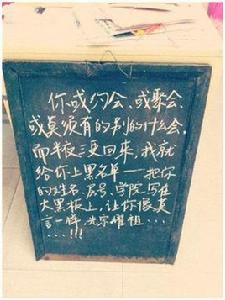 你或约会、或聚会、
或真须有的别的什么会,
而半夜三更回来,我就
给你上黑名单——把你
的姓名、层号、学院写在
大黑板上,让你像莫
言一样,光宗耀祖...
...!!!